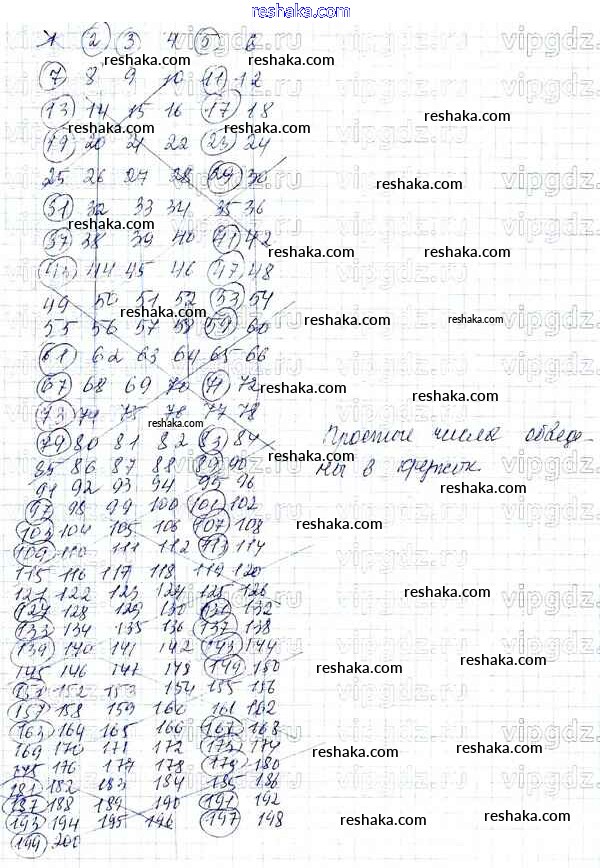 reshaka.com
1 2 3 4 5 6
7 8 9 10 11 12
13 14 15 16 17 18
19 20 21 22 23 24
25 26 27 28 29 30
31 32 33 34 35 36
37 38 39 40 41 42
43 44 45 46 47 48
49 50 51 52 53 54
55 56 57 58 59 60
61 62 63 64 65 66
67 68 69 70 71 72
73 74 75 76 77 78
79 80 81 82 83 84
Простые числа обведе-
ны в кружок.
85 86 87 88 89 90
91 92 93 94 95 96
97 98 99 100 101 102
103 104 105 106 107 108
109 110 111 112 113 114
115 116 117 118 119 120
121 122 123 124 125 126
127 128 129 130 131 132
133 134 135 136 137 138
139 140 141 142 143 144
145 146 147 148 149 150
151 152 153 154 155 156
157 158 159 160 161 162
163 164 165 166 167 168
169 170 171 172 173 174
175 176 177 178 179 180
181 182 183 184 185 186
187 188 189 190 191 192
193 194 195 196 197 198
199 200
reshaka.com
vipgdz.ru